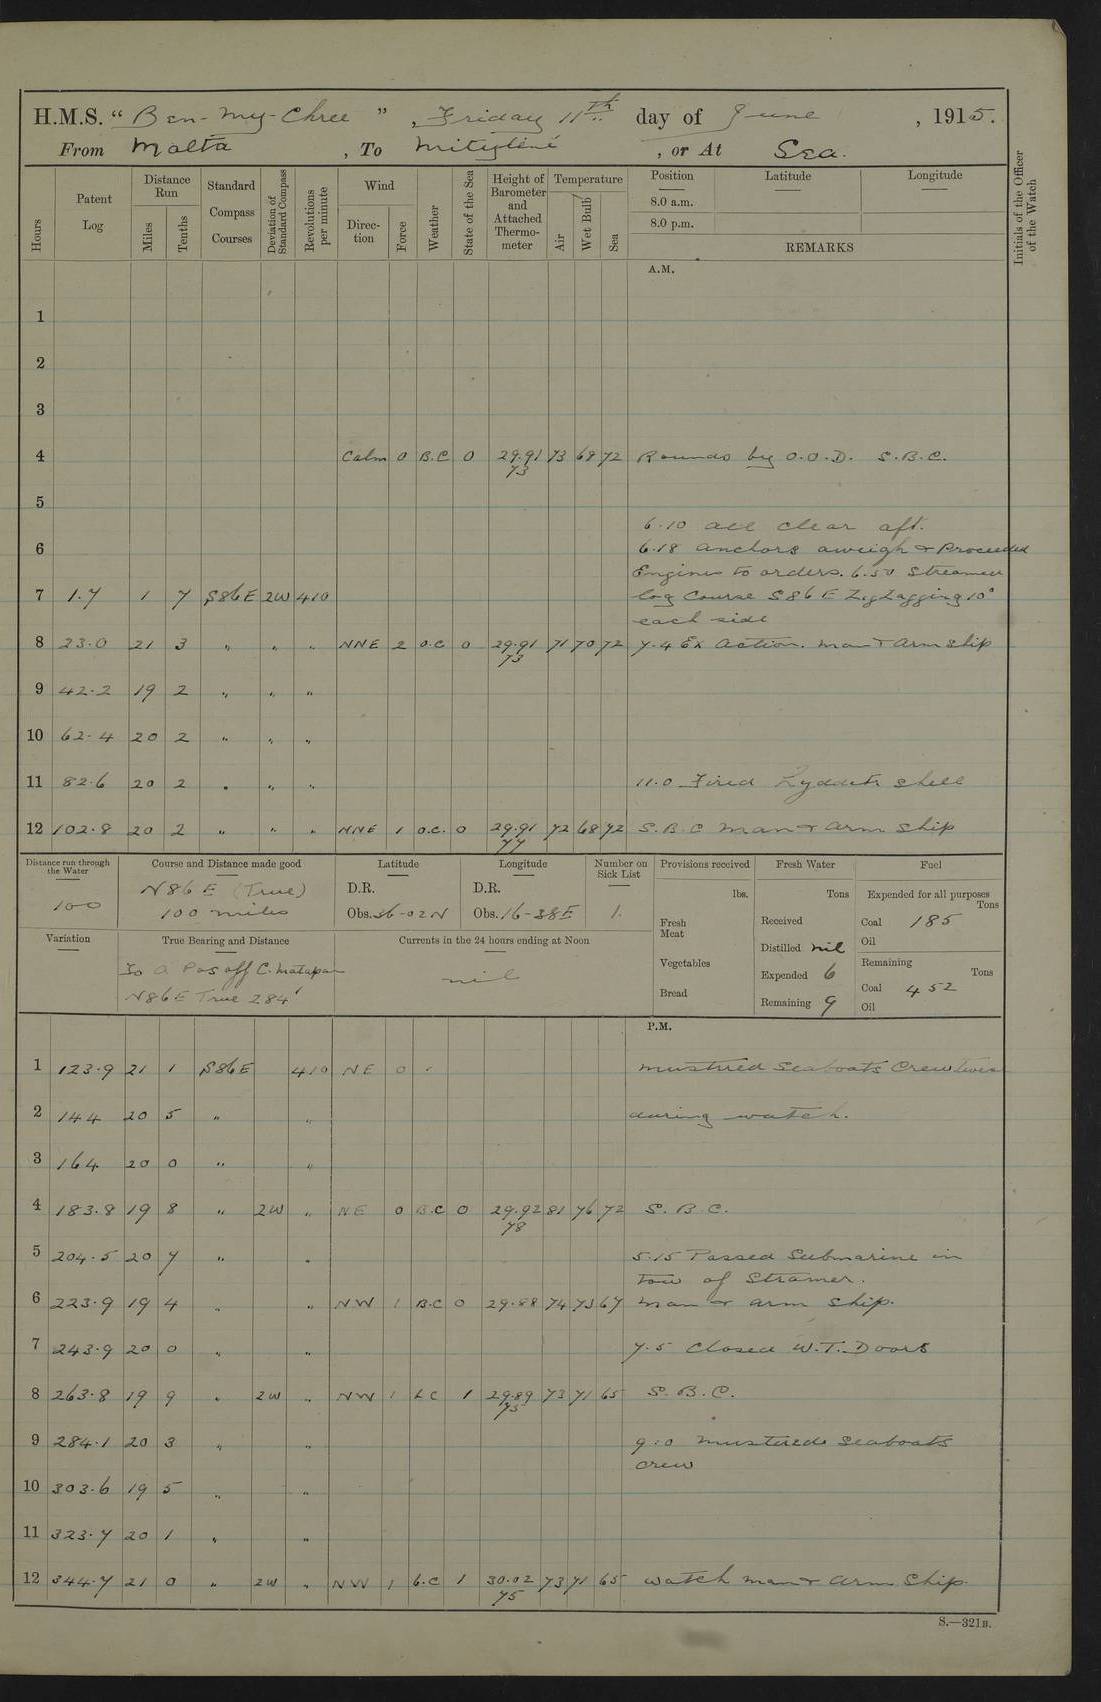 H.M.S. “ Ben-my-Chree ” , Friday 11th day of June , 1915.
From Malta , To Mitylene , or At Sea.
Hours
Patent Log
Distance Run
Miles
Tenths
Standard Compass Courses
Deviation of Standard Compass
Revolutions per minute
Wind
Direction
Force
Weather
State of the Sea
Height of Barometer and Attached Thermometer
Temperature
Air
Wet Bulb
Sea
Position Latitude Longitude
8.0 a.m.
8.0 p.m.
REMARKS
Initials of the Officer of the Watch
A.M.
1
2
3
4 Calm 0 B.C 0 29.91 73 68 72 Rounds by O.O.D. S.B.C.
73
5
6.10 all clear aft.
6 6.18 anchors aweigh & Proceeded
Engines to orders. 6.50 Streamed
7 1.7 1 7 S86E 2W 410 log Course S86E ZigZagging 10°
each side
8 23.0 21 3 " " " NNE 2 o.c 0 29.91 71 70 72 7.4 Ex Action. man & arm ship
73
9 42.2 19 2 " " "
10 62.4 20 2 " " "
11 82.6 20 2 " " " 11.0 Fired Lyddite shell
12 102.8 20 2 " " " NNE 1 o.c. 0 29.91 72 68 72 S.B.C man & arm ship
77
Distance run through the Water
100
Course and Distance made good
N86E (True)
100 miles
Latitude
D.R.
Obs. 36-02N
Longitude
D.R.
Obs. 16-38E
Number on Sick List
1.
Variation
True Bearing and Distance
To a Pos off C. Matapan
N86E True 284'
Currents in the 24 hours ending at Noon
nil
Provisions received
lbs.
Fresh Meat
Vegetables
Bread
Fresh Water
Tons
Received
Distilled nil
Expended 6
Remaining 9
Fuel
Expended for all purposes
Tons
Coal 185
Oil
Remaining
Tons
Coal 452
Oil
P.M.
1 123.9 21 1 S86E 410 NE 0 mustured Seaboats Crew twice
2 144 20 5 " " during watch.
3 164 20 0 " "
4 183.8 19 8 " 2W " NE 0 B.C 0 29.92 81 76 72 S.B.C.
78
5 204.5 20 7 " " 5.15 Passed Submarine in
tow of Stramer.
6 223.9 19 4 " " NW 1 B.C 0 29.88 74 73 67 man & arm ship.
7 243.9 20 0 " " 7.5 Closed W.T. Doors
8 263.8 19 9 " 2W " NW 1 1 29.89 73 71 65 S.B.C.
75
9 284.1 20 3 " " 9.10 mustured seaboats
crew
10 303.6 19 5 " "
11 323.7 20 1 " "
12 344.7 21 0 " 2W " NW 1 b.c 1 30.02 73 71 65 watch man & arm ship.
75
S.—321B.